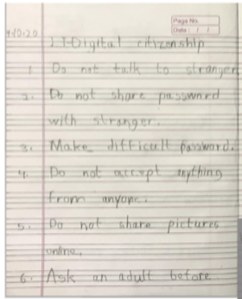 Page No.
Date : / /
1.1-Digital citizenship
1. Do not talk to stranger
2. Do not share password
with stranger.
3. Make difficult password.
4. Do not accept anything
from anyone.
5. Do not share pictures
online.
6. Ask an adult before